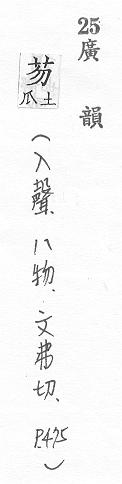 25 廣韻
芴 土瓜
(入聲、八物、文弗切、P.475)